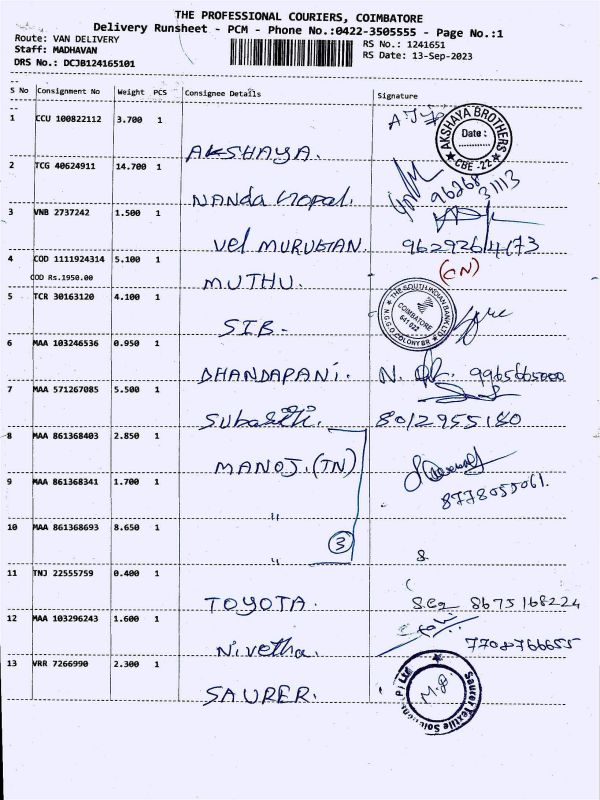 THE PROFESSIONAL COURIERS, COIMBATORE
Delivery Runsheet - PCM - Phone No.:0422-3505555 - Page No.:1
Route: VAN DELIVERY
RS No.: 1241651
Staff: MADHAVAN
RS Date: 13-Sep-2023
DRS No.: DCJB124165101
S No Consignment No Weight PCS Consignee Details Signature
1 CCU 100822112 3.700 1 AKSHAYA.
AKSHAYA BROTHERS
Date :
CBE -22
2 TCG 40624911 14.700 1 Nanda Gopal. 96268 31113
3 VNB 2737242 1.500 1 Vel MURUGAN.
4 COD 1111924314 5.100 1 MUTHU. (CN)
COD Rs.1950.00
5 TCR 30163120 4.100 1 SIB.
THE SOUTH INDIAN BANK LTD
COIMBATORE
641 022
N.G.G.O.COLONY BR
6 MAA 103246536 0.950 1 DHANDAPANI. N.
7 MAA 571267085 5.500 1 8012955180
8 MAA 861368403 2.850 1 MANOJ.(TN)
9 MAA 861368341 1.700 1 " 8778055061.
10 MAA 861368693 8.650 1 " 3
11 TNJ 22555759 0.400 1 TOYOTA. 8675168224
12 MAA 103296243 1.600 1 Nivetha. 7708766655
13 VRR 7266990 2.300 1 SAURER.
Saurer Textile Solutions P Ltd